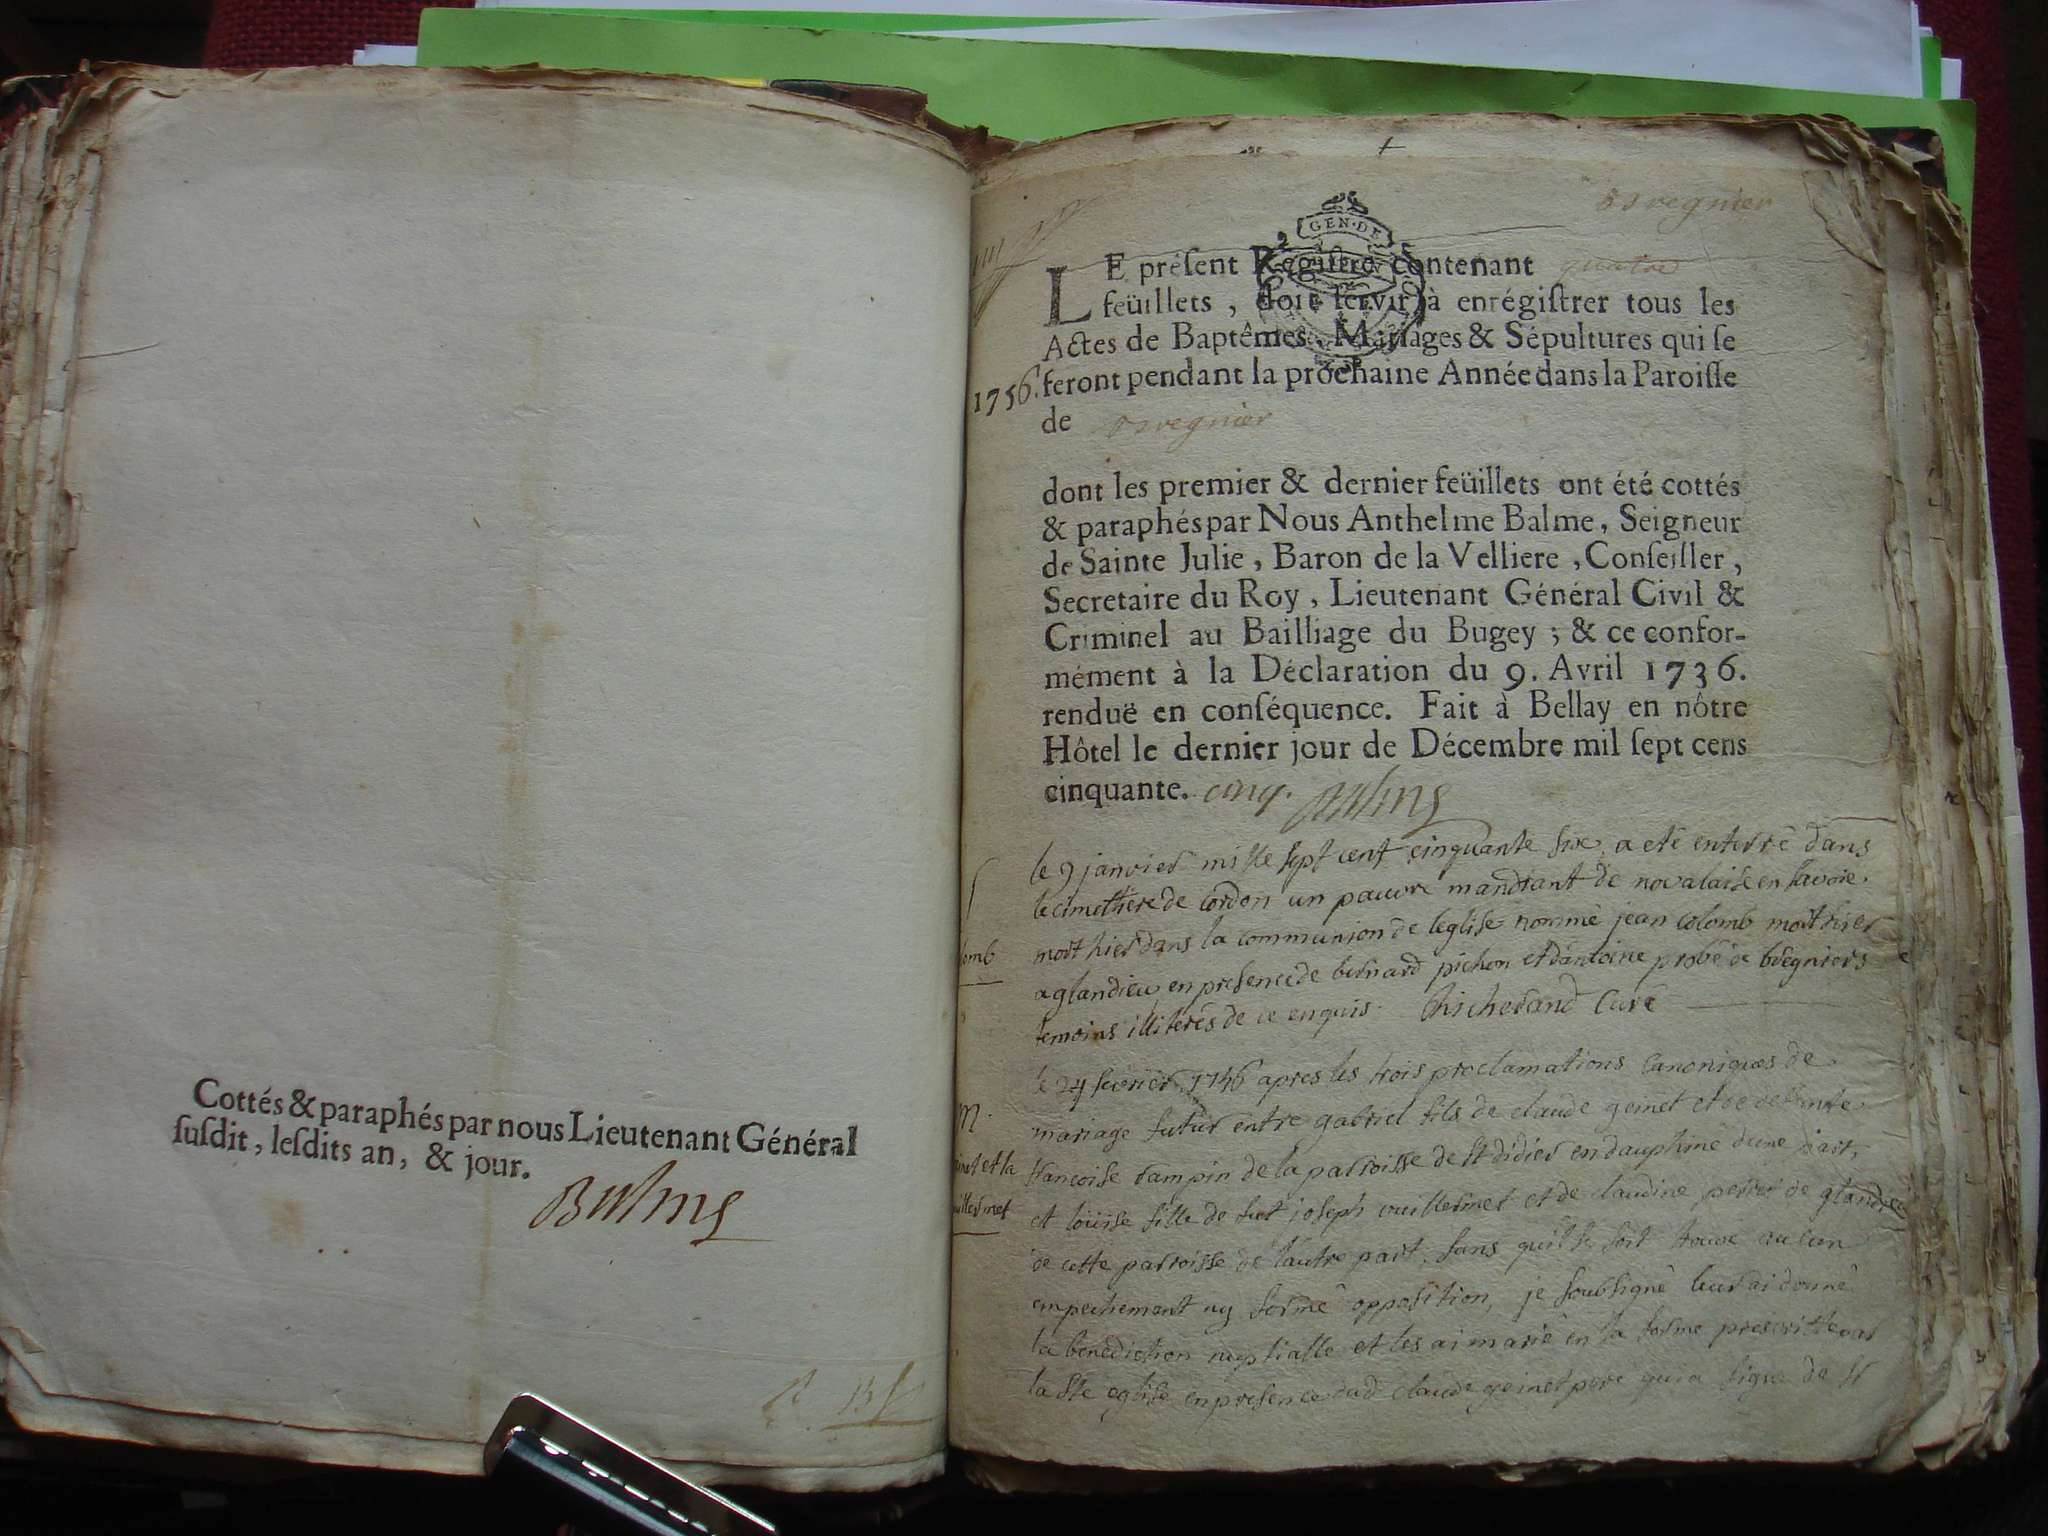 Cottés & paraphés par nous Lieutenant Général
ſuſdit, leſdits an, & jour.
Balme
GEN·DE
LE préſent Regiſtre contenant quatre
feüillets, doit ſervir à enrégiſtrer tous les
Actes de Baptêmes, Mariages & Sépultures qui ſe
1756.
feront pendant la prochaine Année dans la Paroiſſe
de
dont les premier & dernier feüillets ont été cottés
& paraphés par Nous Anthelme Balme, Seigneur
de Sainte Julie, Baron de la Velliere, Conſeiller,
Secretaire du Roy, Lieutenant Général Civil &
Criminel au Bailliage du Bugey; & ce confor-
mément à la Déclaration du 9. Avril 1736.
renduë en conſéquence. Fait à Bellay en nôtre
Hôtel le dernier jour de Décembre mil ſept cens
cinquante. cinq. Balme
le 9 janvier mille sept cent cinquante six a eté enterré dans
le cimethiere de Cordon un pauvre mandiant de novalaise en savoie.
omb
mort hier dans la communion de leglise nommé jean colomb mort hier
a glandieu en presence de bernard pichon et dantoine probé de bregniers
temoins illiterés de ce enquis. Chicherand Curé
le 24 fevrier 1756 apres les trois proclamations canoniques de
M.
mariage futur entre gabriel fils de claude geinet et de defunte
inet et la
françoise rampin de la parroisse de st didier en dauphiné dune part,
uillermet
et loüise fille de fut joseph vuillermet et de claudine perret de glandieu
de cette parroisse de lautre part, sans quil se soit trouve aucun
empechement ny formé opposition, je soubsigné leur ai donné
la benediction nuptialle et les ai marié en la forme prescritte par
la ste eglise en presence dud claude geinet pere qui a signe de st